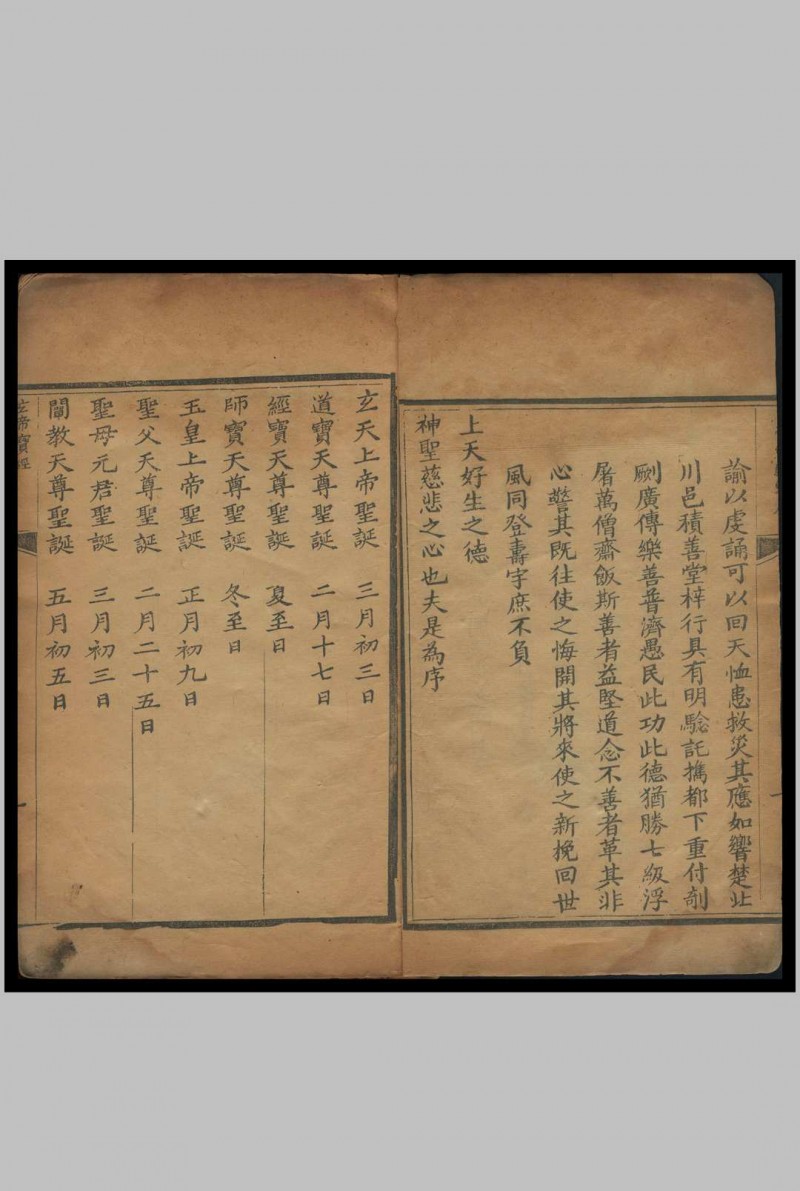 諭以虔誦可以回天恤患救災其應如響楚北
川邑積善堂梓行具有明驗託擕都下重付剞
劂廣傳樂善普濟愚民此功此德猶勝七級浮
屠萬僧齋飯斯善者益堅道念不善者革其非
心警其既往使之悔開其將來使之新挽回世
風同登壽宇庶不負
上天好生之德
神聖慈悲之心也夫是為序
玄天上帝聖誕 三月初三日
道寶天尊聖誕 二月十七日
經寶天尊聖誕 夏至日
師寶天尊聖誕 冬至日
玉皇上帝聖誕 正月初九日
聖父天尊聖誕 二月二十五日
聖母元君聖誕 三月初三日
闡教天尊聖誕 五月初五日
玄帝寶經